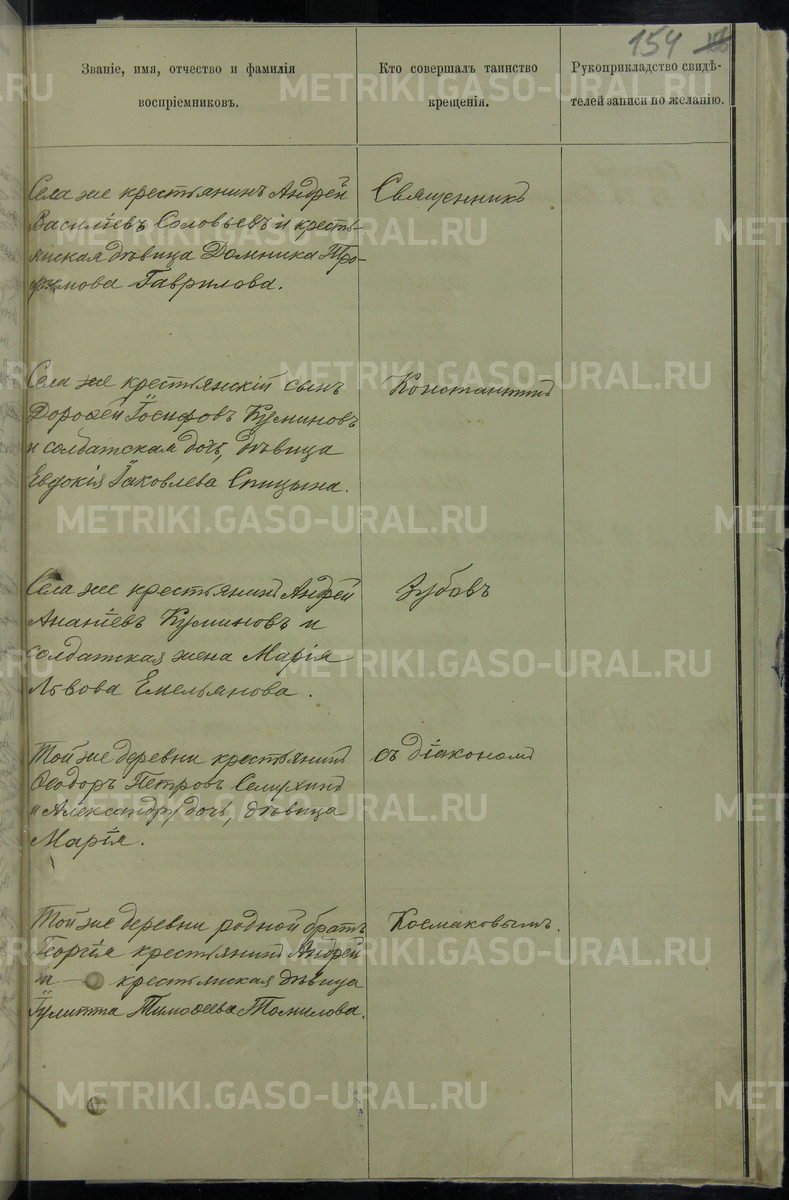 154
Званіе, имя, отчество и фамилія
воспріемниковъ.
Кто совершалъ таинство
крещенія.
Рукоприкладство свидѣ-
телей записи по желанію.
Села же крестьянинъ Андрей
Василіевъ Соловьевъ и кресть-
янская дѣвица Домника Тро-
фимова Гаврилова.
Священникъ
Села же крестьянскій сынъ
Дорофей Іосифовъ Куминовъ
и солдатская дочь, дѣвица
Евдокія Іаковлева Спицына.
Константинъ
Села же крестьянинъ Андрей
Ананіевъ Куминовъ и
солдатская жена Марія
Львова Емельянова.
Зубовъ
Той же деревни крестьянинъ
Ѳеодоръ Петровъ Семухинъ
и Александру дочь, дѣвица
Марія.
съ діакономъ
Той же деревни родной братъ
Георгія крестьянинъ Андрей
и крестьянская дѣвица
Іулитта Тимоѳеева Томилова.
Космаковымъ.
METRIKI.GASO-URAL.RU